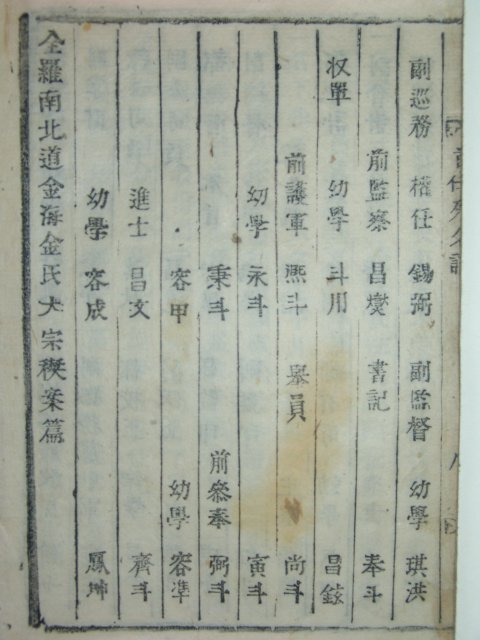 副巡務 權任 錫弼 副監督 幼學 琪洪
前監察 昌燮 書記 奉斗
収單 幼學 斗用 昌鉉
前護軍 熙斗 擧員 尚斗
幼學 永斗 寅斗
秉斗 前參奉 弼斗
容甲 幼學 容準
進士 昌文 齊斗
幼學 容成 鳳坤
全羅南北道金海金氏大宗稧案篇